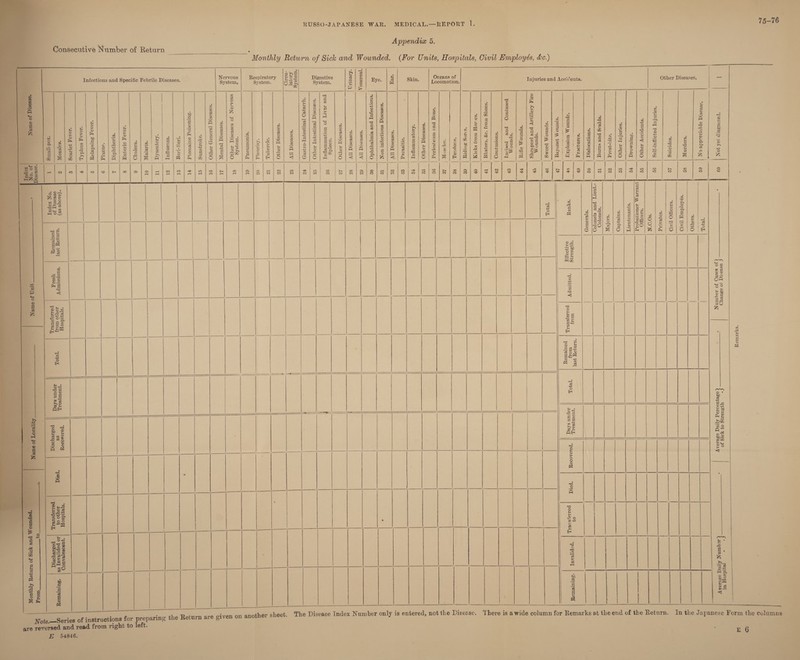 RUSSO-JAPANESE WAR. MEDICAL.—REPORT 1.
75–76
Appendix 5.
Consecutive Number of Return
Monthly Return of Sick and Wounded. (For Units, Hospitals, Civil Employés, &c.)
Name of Disease.
Infectious and Specific Febrile Diseases.
Nervous System.
Respiratory System.
Circulatory System.
Digestive System.
Urinary.
Venereal.
Eye.
Ear.
Skin.
Organs of Locomotion.
Injuries and Accidents.
Other Diseases.
Small-pox.
Measles.
Scarlet Fever.
Typhus Fever.
Relapsing Fever.
Plague.
Diphtheria.
Enteric Fever.
Cholera.
Malaria.
Dysentery.
Influenza.
Beri-beri.
Ptomaine Poisoning.
Sunstroke.
Other General Diseases.
Mental Diseases.
Other Diseases of Nervous System.
Pneumonia.
Pleurisy.
Tubercle.
Other Diseases.
All Diseases.
Gastro-Intestinal Catarrh.
Other Intestinal Diseases.
Inflammation of Liver and Spleen.
Other Diseases.
All Diseases.
All Diseases.
Ophthalmia and Infectious
Non infectious Diseases.
All Diseases.
Parasitic.
Inflammatory.
Other Diseases.
Periosteum and Bone.
Muscles.
Tendons.
Riding Sores.
Kicks from Horses.
Blisters, &c. from Shoes.
Contusions.
Incised and Contused Wounds.
Rifle Wounds.
Shell and Artillery Fire Wounds.
Sword Wounds.
Bayonet Wounds.
Explosion Wounds.
Fractures.
Dislocations.
Burns and Scalds.
Frost-bite.
Other Injuries.
Drowning.
Other Accidents.
Self-inflicted Injuries.
Suicides.
Murders.
No appreciable Disease.
Not yet diagnosed.
Index No. of Disease.
1 2 3 4 5 6 7 8 9 10 11 12 13 14 15 16 17 18 19 20 21 22 23 24 25 26 27 28 29 30 31 32 33 34 35 36 37 38 39 40 41 42 43 44 45 46 47 48 49 50 51 52 53 54 55 56 57 58 59 60
Name of Unit
Name of Locality
Monthly Return of Sick and Wounded.
From to
Index No. of Disease (as above).
Remained last Return.
Fresh Admissions.
Transferred from other Hospitals.
Total.
Days under Treatment.
Discharged as Recovered.
Died.
Transferred to other Hospitals.
Discharged as Invalided or Convalescent.
Remaining.
Total.
Ranks.
Generals.
Colonels and Lieut.-Colonels.
Majors.
Captains.
Lieutenants.
Probationers Warrant Officers.
N.C.Os.
Privates.
Civil Officers.
Civil Employés.
Others.
Total.
Effective Strength.
Admitted.
Transferred from
Remained from last Return.
Total.
Days under Treatment.
Recovered.
Died.
Transferred to
Invalided.
Remaining.
Number of Cases of Change of Disease
Average Daily Percentage of Sick to Strength
Average Daily Number in Hospital
Remarks.
Note.—Series of instructions for preparing the Return are given on another sheet. The Disease Index Number only is entered, not the Disease. There is a wide column for Remarks at the end of the Return. In the Japanese Form the columns
are reversed and read from right to left.
E 54846.
E 6